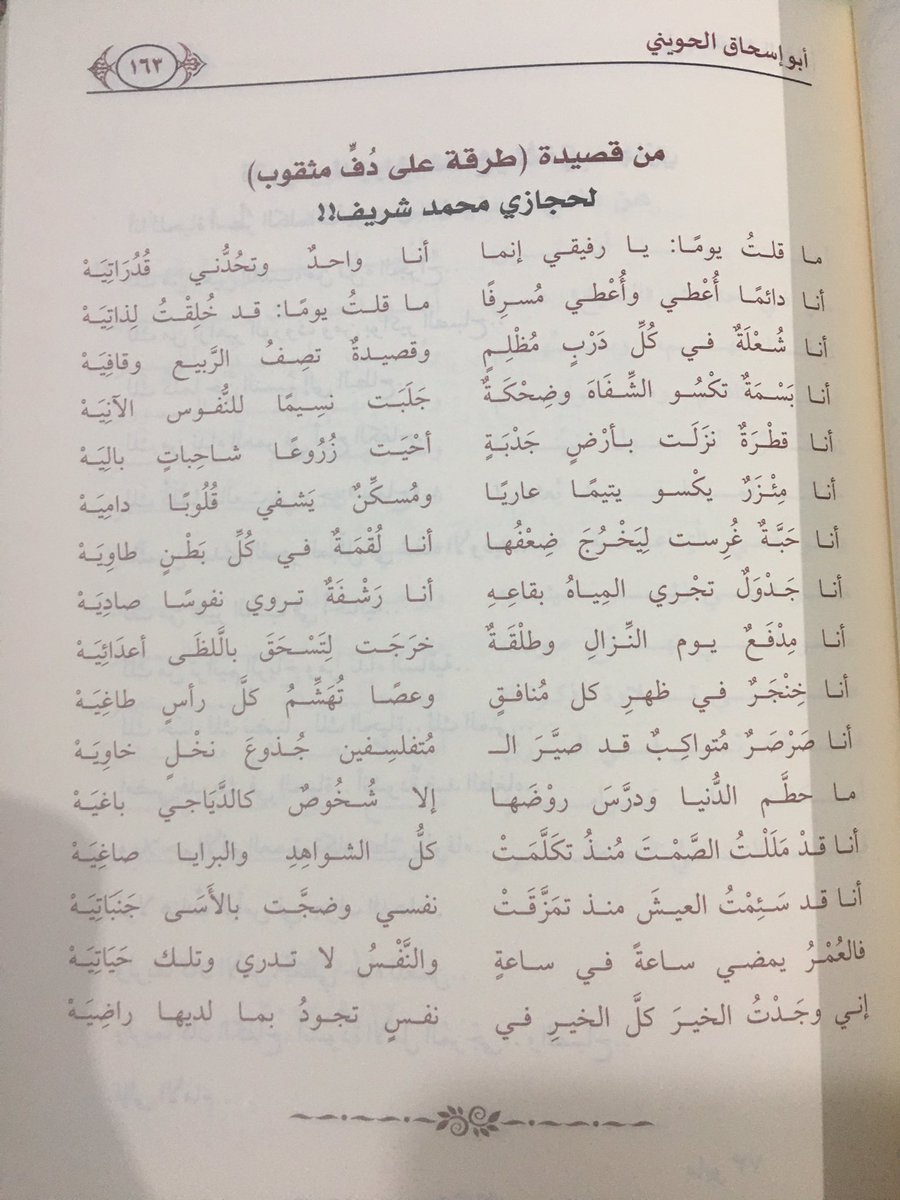 أبو إسحاق الحويني
١٦٣
من قصيدة (طرقة على دُفٍّ مثقوب)
لحجازي محمد شريف!!
ما قلتُ يومًا: يا رفيقي إنما أنا واحدٌ وتحُدُّني قُدُرَاتِيَهْ
أنا دائمًا أُعْطي وأُعْطي مُسرِفًا ما قلتُ يومًا: قد خُلِقْتُ لِذاتِيَهْ
أنا شُعْلَةٌ في كُلِّ دَرْبٍ مُظْلِمٍ وقصيدةٌ تصِفُ الرَّبيع وقافِيَهْ
أنا بَسْمَةٌ تكْسُو الشِّفَاهَ وضِحْكَةٌ جَلَبَت نسِيمًا للنُّفُوس الآنِيَهْ
أنا قطْرَةٌ نزَلَت بأرْضٍ جَدْبَةٍ أحْيَت زُرُوعًا شاحِباتٍ بالِيَهْ
أنا مِئْزَرٌ يكْسو يتيمًا عاريًا ومُسكِّنٌ يَشفي قُلُوبًا دامِيَهْ
أنا حَبَّةٌ غُرِست لِيَخْرُجَ ضِعْفُها أنا لُقْمَةٌ في كُلِّ بَطْنٍ طاوِيَهْ
أنا جَدْوَلٌ تجْري المِياهُ بقاعِهِ أنا رَشْفَةٌ تروي نفوسًا صادِيَهْ
أنا مِدْفَعٌ يوم النِّزالِ وطلْقَةٌ خرَجَت لِتَسْحَقَ باللَّظَى أعدَائِيَهْ
أنا خِنْجَرٌ في ظهرِ كل مُنافقٍ وعصًا تُهَشِّمُ كلَّ رأسٍ طاغِيَهْ
أنا صَرْصَرٌ مُتواكِبٌ قد صيَّرَ الـ مُتفلسِفين جُذوعَ نخْلٍ خاوِيَهْ
ما حطَّم الدُّنيا ودرَّسَ روْضَها إلا شُخُوصٌ كالدَّيَاجي باغيَهْ
أنا قدْ مَلَلْتُ الصَّمْتَ مُنذُ تكَلَّمَتْ كلُّ الشواهِدِ والبرايا صاغِيَهْ
أنا قد سَئِمْتُ العيشَ منذ تمَزَّقَتْ نفسي وضجَّت بالأَسَى جَنَبَاتِيَهْ
فالعُمْرُ يمضي ساعةً في ساعةٍ والنَّفْسُ لا تدري وتلك حَيَاتِيَهْ
إني وجَدْتُ الخيرَ كلَّ الخيرِ في نفسٍ تجودُ بما لديها راضِيَهْ